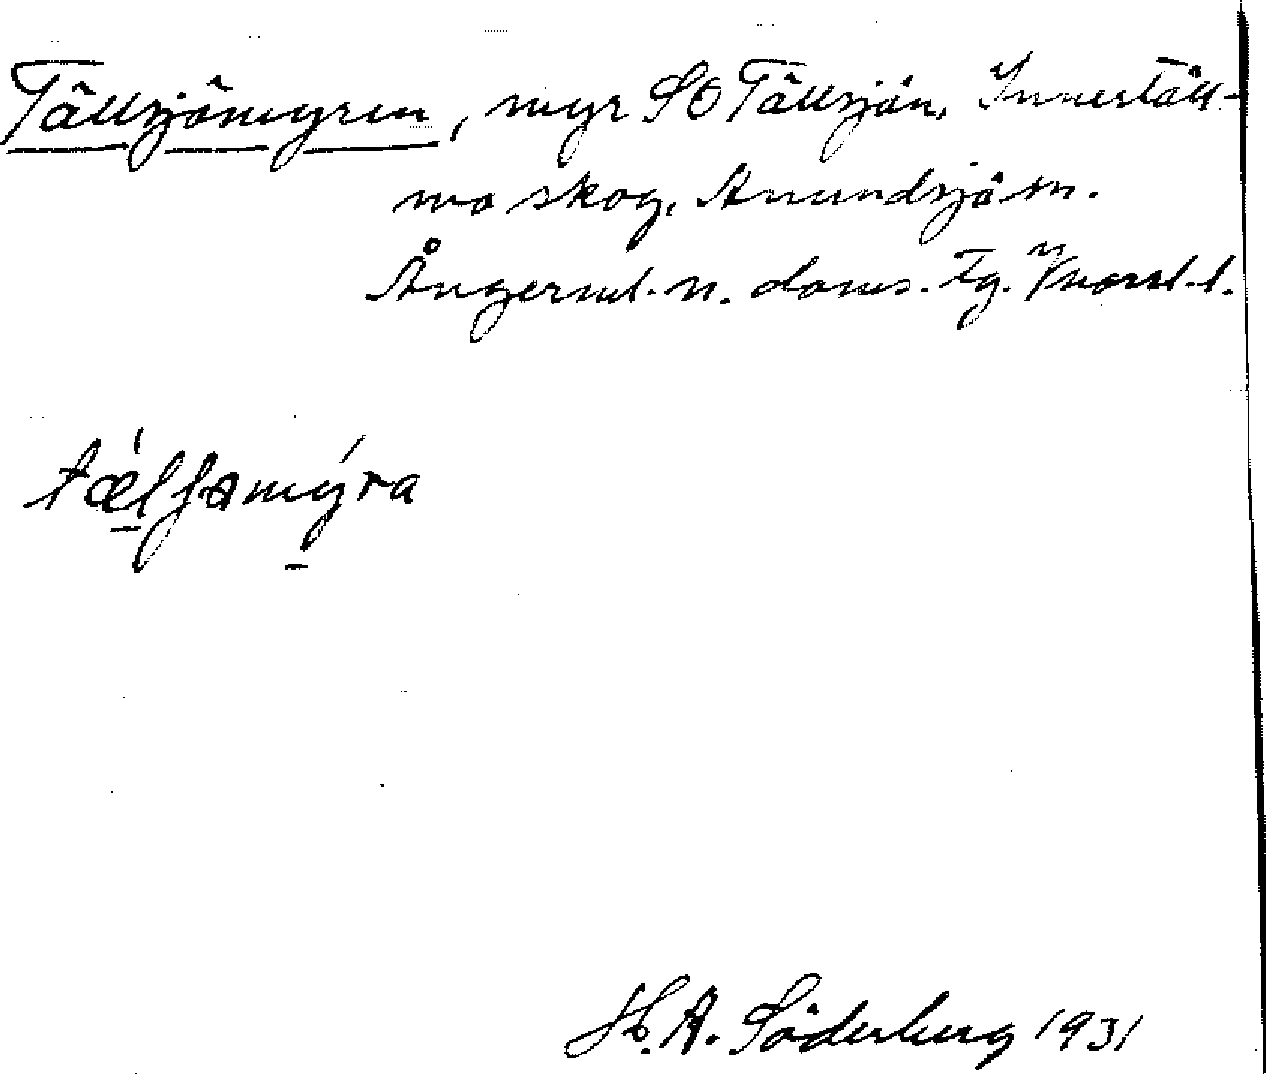 Tällsjömyren, myr SO Tällsjön, Innertäll-
mo skog, Anundsjö sn.
Ångerml. n. doms. tg. Vnorrl. l.
tælʃamýra
H. A. Söderberg 1931